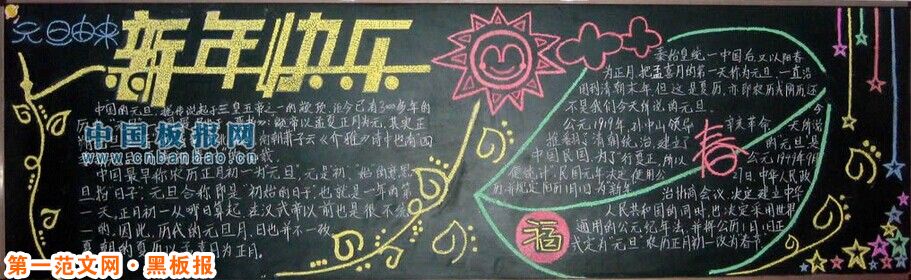 元旦由来
新年快乐
中国的元旦,据传说起于三皇五帝之一的颛顼,距今已有3000多年的
中国板报网
www.cnbanbao.cn
中国最早称农历正月初一为"元旦",元是"初"、"始"的意思
旦指"日子","元旦"合称即是"初始的日子",也就是一年的第
一天。正月初一从哪日算起,在汉武帝以前也是很不统
一的。因此,历代的元旦月、日也并不一致。
夏朝的夏历以孟喜月为正月
秦始皇统一中国后,又以阳春
为正月,把孟喜月的第一天称为元旦,一直沿
因到清朝末年。但这是夏历,亦即农历或阴历,还
不是我们今天所说的元旦。
公元1919年,孙中山领导
辛亥革命
推翻了清朝统治,建立了
中国民国。为了"行夏正,所以
便统计",民国元年决定使用公
春
福
治协商会议,决定建立中华
人民共和国的同时,也决定采用世界
通用的公元纪年法,并将公历1月1日正
式定为"元旦",农历正月初一改为"春节"
第一范文网·黑板报